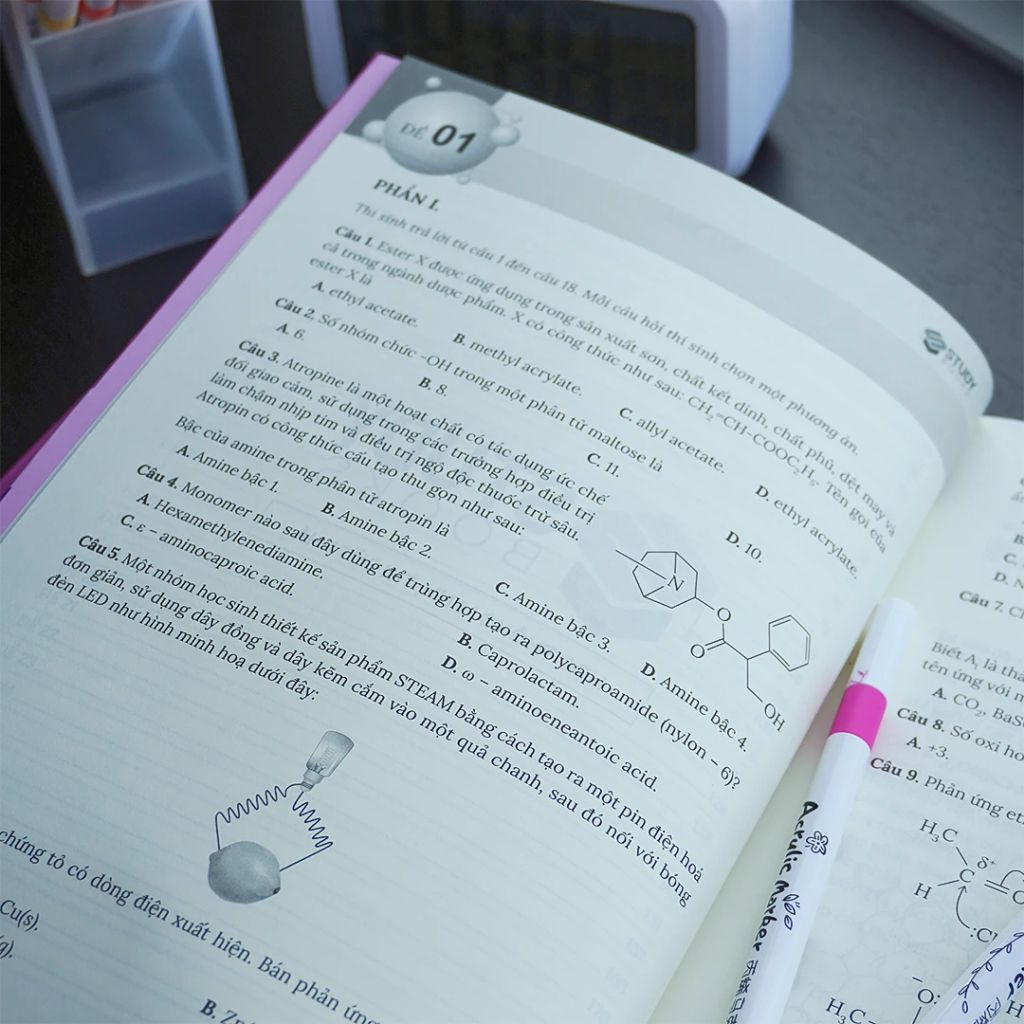 ĐỀ 01
STUDY
PHẦN I.
Thí sinh trả lời từ câu 1 đến câu 18. Mỗi câu hỏi thí sinh chọn một phương án.
Câu 1. Ester X được ứng dụng trong sản xuất sơn, chất kết dính, chất phủ, dệt may và
cả trong ngành dược phẩm. X có công thức như sau: CH₂=CH-COOC₂H₅. Tên gọi của
ester X là
A. ethyl acetate. B. methyl acrylate. C. allyl acetate. D. ethyl acrylate.
Câu 2. Số nhóm chức –OH trong một phân tử maltose là
A. 6. B. 8. C. 11. D. 10.
Câu 3. Atropine là một hoạt chất có tác dụng ức chế
đối giao cảm, sử dụng trong các trường hợp điều trị
làm chậm nhịp tim và điều trị ngộ độc thuốc trừ sâu.
Atropin có công thức cấu tạo thu gọn như sau:
N
O
O
OH
Bậc của amine trong phân tử atropin là
A. Amine bậc 1. B. Amine bậc 2. C. Amine bậc 3. D. Amine bậc 4.
Câu 4. Monomer nào sau đây dùng để trùng hợp tạo ra polycaproamide (nylon – 6)?
A. Hexamethylenediamine. B. Caprolactam.
C. ε – aminocaproic acid. D. ω – aminoeneantoic acid.
Câu 5. Một nhóm học sinh thiết kế sản phẩm STEAM bằng cách tạo ra một pin điện hoá
đơn giản, sử dụng dây đồng và dây kẽm cắm vào một quả chanh, sau đó nối với bóng
đèn LED như hình minh hoạ dưới đây:
chứng tỏ có dòng điện xuất hiện. Bán phản ứng
Cu(s).
B.
B.
C.
D.
Câu 7.
Biết A, là
tên ứng với
A. CO₂,
Câu 8. Số oxi
A. +3.
Câu 9. Phản ứng
H₃C
δ⁺
C
H
O
H₃C
O:
Acrylic Marker